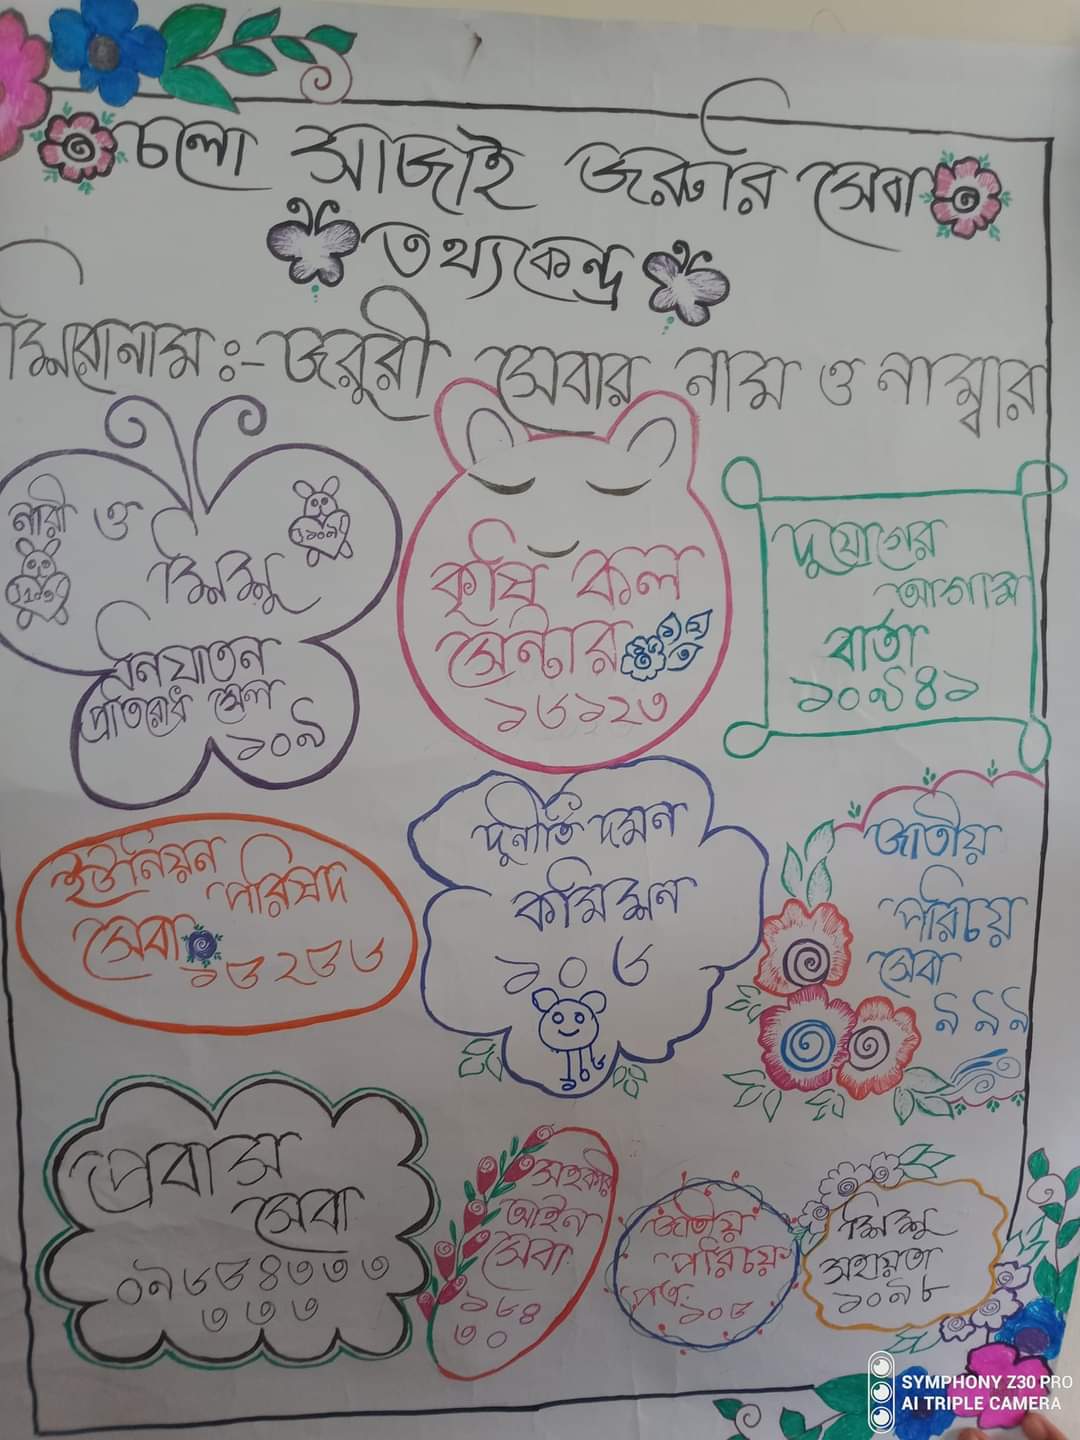 চলো সাজাই জরুরি সেবা
তথ্যকেন্দ্র
শিরোনাম:- জরুরী সেবার নাম ও নাম্বার
নারী ও
শিশু
নির্যাতন
প্রতিরোধ সেল
১০৯
কৃষি কল
সেন্টার
১৬১২৩
দুর্যোগের
আগাম
বার্তা
১০৯৪১
ইউনিয়ন
পরিষদ
সেবা
১৬২৫৬
দুর্নীতি দমন
কমিশন
১০৬
১০৬
জাতীয়
পরিচয়
সেবা
৯৯৯
প্রবাস
সেবা
সরকারি
আইন
সেবা
১৬৪
৩০
জাতীয়
পরিচয়
পত্র
১০৫
শিশু
সহায়তা
১০৯৮
SYMPHONY Z30 PRO
AI TRIPLE CAMERA